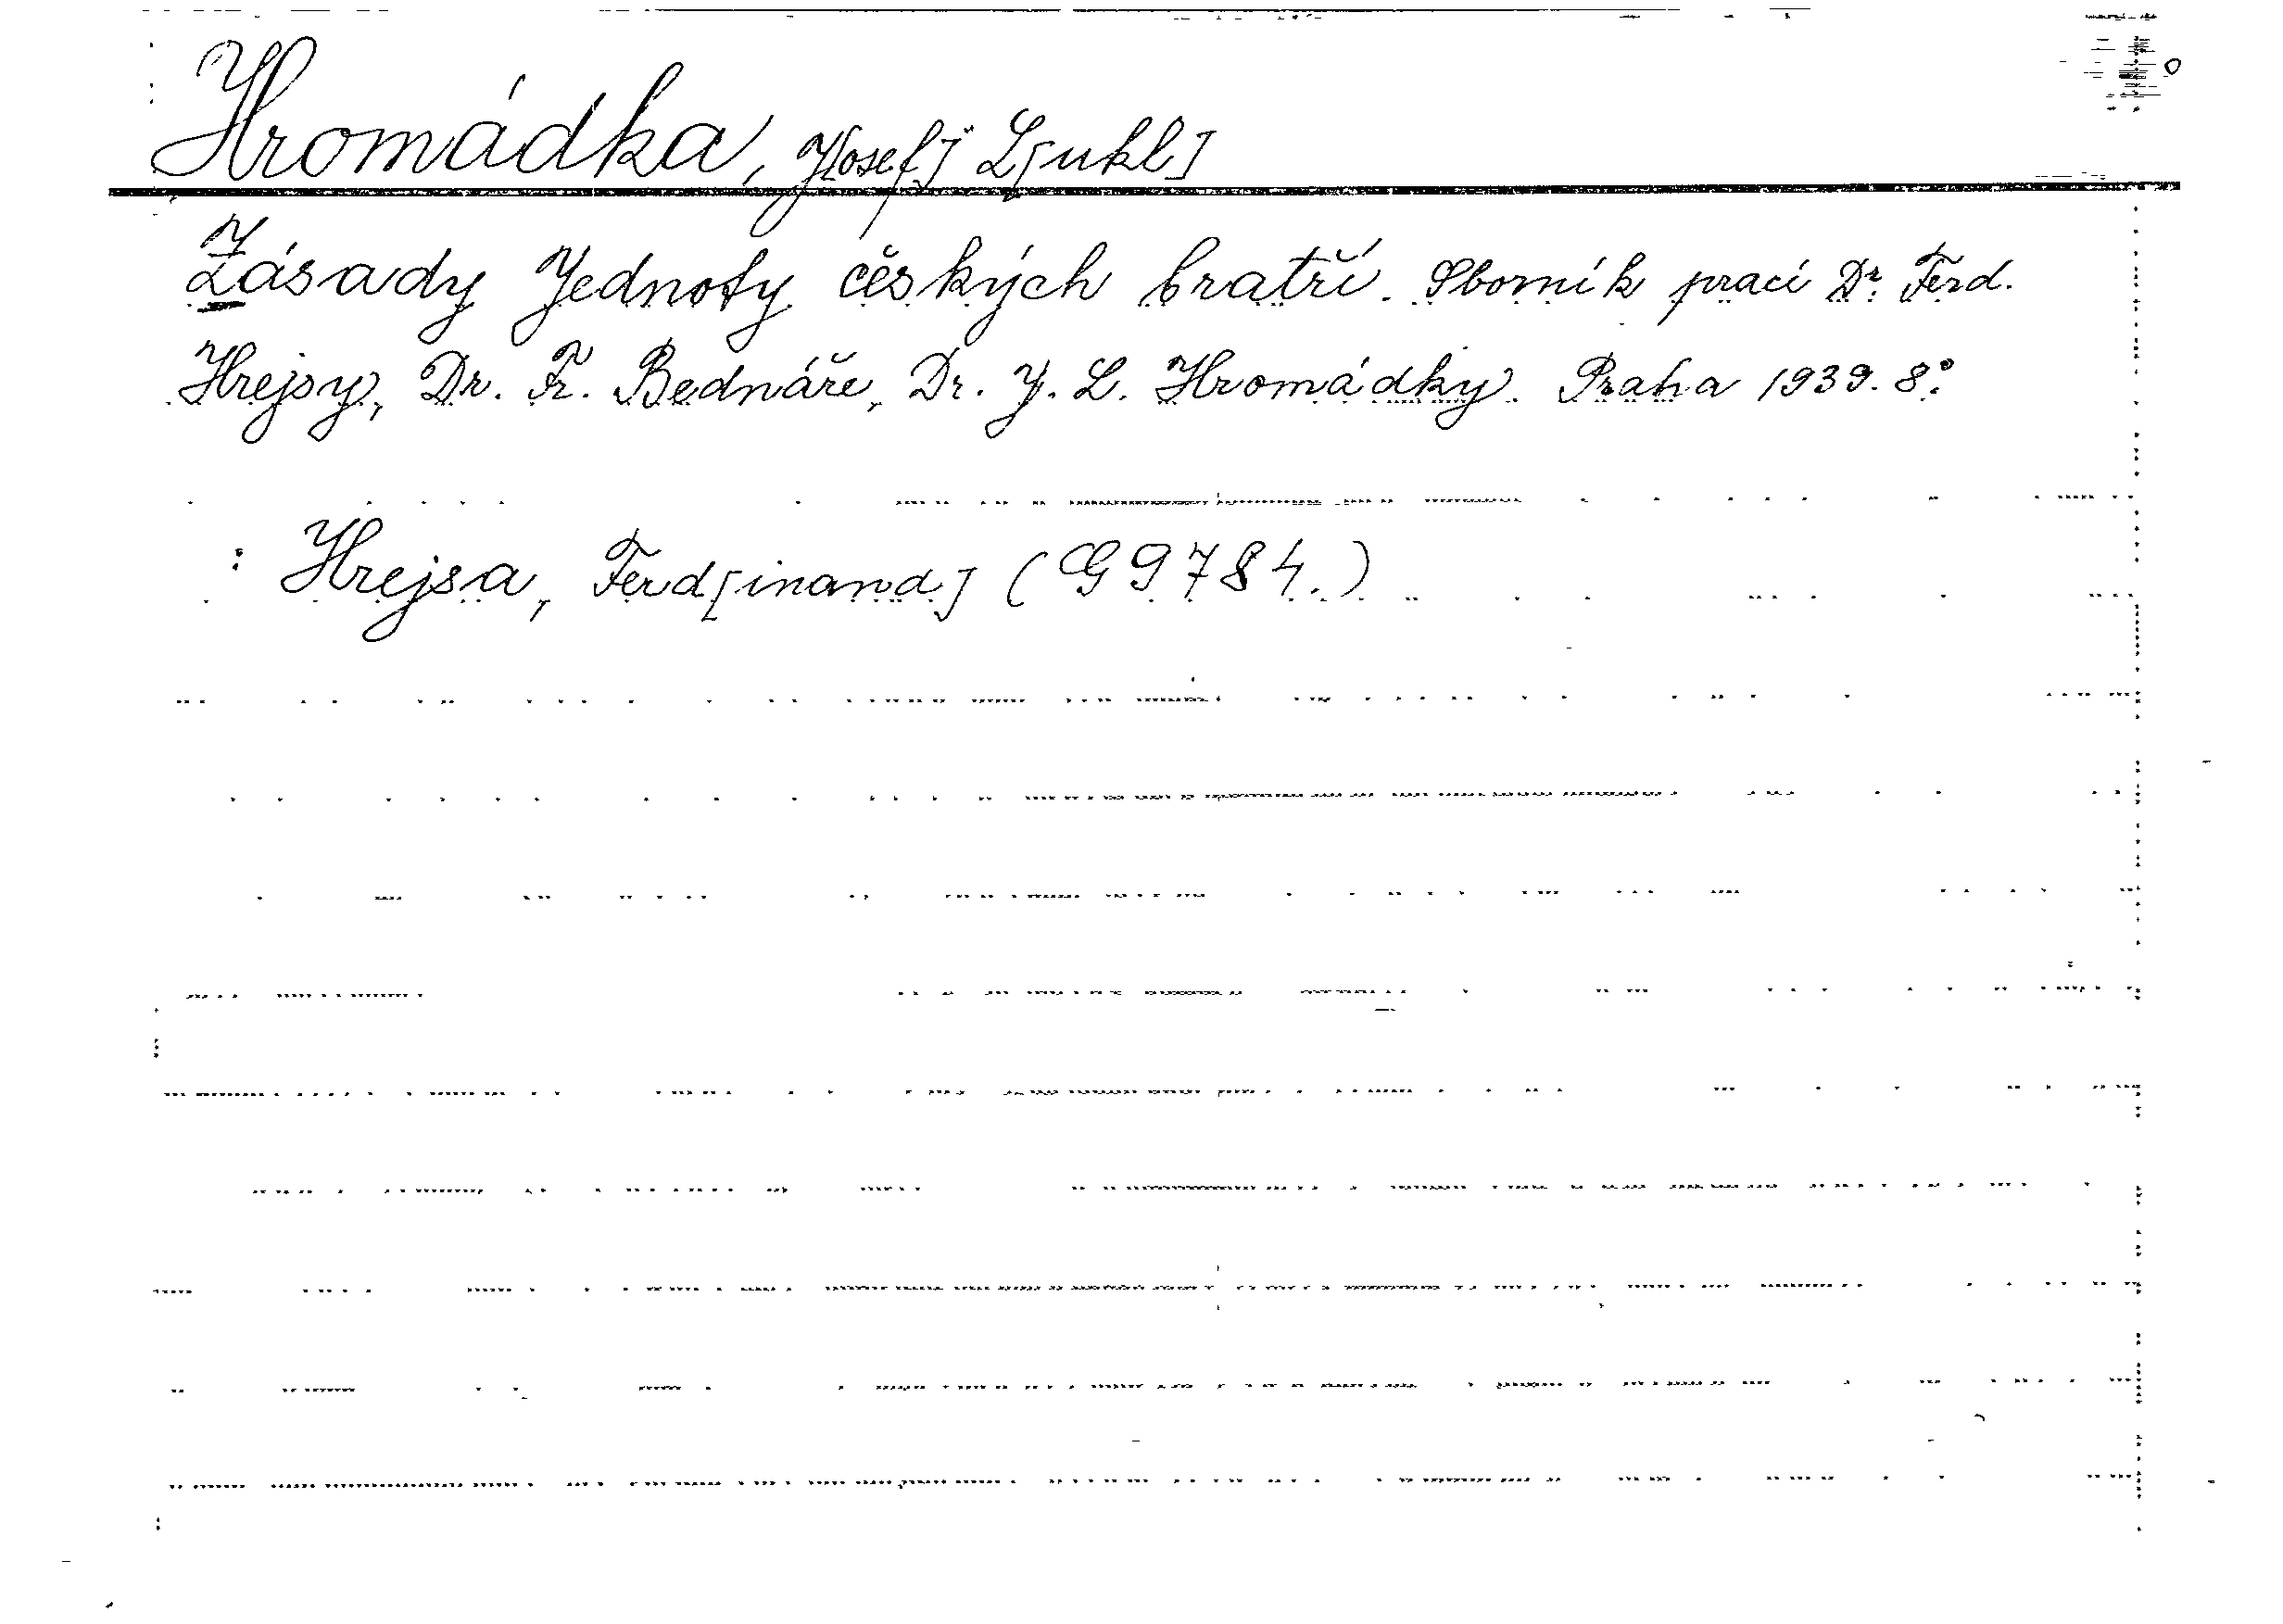 Hromádka, J[osef] L[ukl]
Zásady Jednoty českých bratří. Sborník prací Dr. Ferd.
Hrejsy, Dr. Fr. Bednáře, Dr. J. L. Hromádky. Praha 1939. 8°.
: Hrejsa, Ferd[inand] (G 9784.)